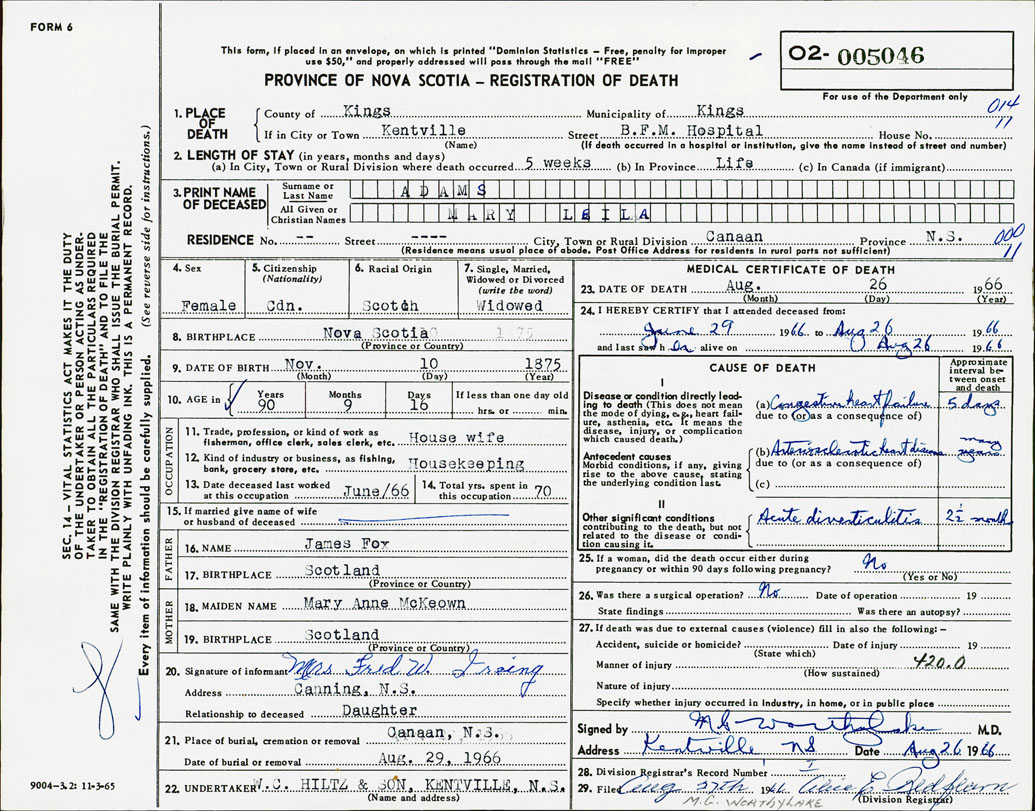 FORM 6
This form, if placed in an envelope, on which is printed "Dominion Statistics – Free, penalty for improper
use $50," and properly addressed will pass through the mail "FREE"
PROVINCE OF NOVA SCOTIA – REGISTRATION OF DEATH
02- 005046
For use of the Department only
014
11
1. PLACE OF DEATH
County of Kings Municipality of Kings
If in City or Town Kentville Street B.F.M. Hospital House No.
(Name) (If death occurred in a hospital or institution, give the name instead of street and number)
2. LENGTH OF STAY (in years, months and days)
(a) In City, Town or Rural Division where death occurred 5 weeks (b) In Province Life (c) In Canada (if immigrant)
3. PRINT NAME OF DECEASED
Surname or Last Name ADAMS
All Given or Christian Names MARY LEILA
RESIDENCE No. -- Street ---- City, Town or Rural Division Canaan Province N.S.
(Residence means usual place of abode. Post Office Address for residents in rural parts not sufficient)
000
11
4. Sex
Female
5. Citizenship
(Nationality)
Cdn.
6. Racial Origin
Scotch
7. Single, Married,
Widowed or Divorced
(write the word)
Widowed
8. BIRTHPLACE Nova Scotia
(Province or Country)
9. DATE OF BIRTH Nov. 10 1875
(Month) (Day) (Year)
10. AGE in Years Months Days If less than one day old
90 9 16 hrs. or min.
OCCUPATION
11. Trade, profession, or kind of work as
fisherman, office clerk, sales clerk, etc. House wife
12. Kind of industry or business, as fishing,
bank, grocery store, etc. Housekeeping
13. Date deceased last worked
at this occupation June/66
14. Total yrs. spent in
this occupation 70
15. If married give name of wife
or husband of deceased
FATHER
16. NAME James Fox
17. BIRTHPLACE Scotland
(Province or Country)
MOTHER
18. MAIDEN NAME Mary Anne McKeown
19. BIRTHPLACE Scotland
(Province or Country)
20. Signature of informant Mrs Fred W. Irving
Address Canning, N.S.
Relationship to deceased Daughter
21. Place of burial, cremation or removal Canaan, N.S.
Date of burial or removal Aug. 29, 1966
22. UNDERTAKER W.C. HILTZ & SON, KENTVILLE, N.S.
(Name and address)
MEDICAL CERTIFICATE OF DEATH
23. DATE OF DEATH Aug. 26 1966
(Month) (Day) (Year)
24. I HEREBY CERTIFY that I attended deceased from:
June 29 1966 to Aug 26 1966
and last saw h er alive on Aug 26 1966
CAUSE OF DEATH
Approximate
interval be-
tween onset
and death
I
Disease or condition directly lead-
ing to death (This does not mean
the mode of dying, e.g., heart fail-
ure, asthenia, etc. It means the
disease, injury, or complication
which caused death.)
(a) Congestive heart failure 5 days
due to (or as a consequence of)
Antecedent causes
Morbid conditions, if any, giving
rise to the above cause, stating
the underlying condition last.
(b) Arteriosclerotic heart disease many years
due to (or as a consequence of)
(c)
II
Other significant conditions
contributing to the death, but not
related to the disease or condi-
tion causing it.
Acute diverticulitis 2½ months
25. If a woman, did the death occur either during
pregnancy or within 90 days following pregnancy? No
(Yes or No)
26. Was there a surgical operation? No Date of operation 19
State findings Was there an autopsy?
27. If death was due to external causes (violence) fill in also the following: –
Accident, suicide or homicide? Date of injury 19
(State which)
Manner of injury 420.0
(How sustained)
Nature of injury
Specify whether injury occurred in industry, in home, or in public place
Signed by M G Worthylake M.D.
Address Kentville NS Date Aug 26 1966
28. Division Registrar's Record Number
29. Filed Aug 27th 1966 Alice E. Redfearn
(Division Registrar)
M.G. WORTHYLAKE
SEC. 14 – VITAL STATISTICS ACT MAKES IT THE DUTY
OF THE UNDERTAKER OR PERSON ACTING AS UNDER-
TAKER TO OBTAIN ALL THE PARTICULARS REQUIRED
IN THE "REGISTRATION OF DEATH" AND TO FILE THE
SAME WITH THE DIVISION REGISTRAR WHO SHALL ISSUE THE BURIAL PERMIT.
WRITE PLAINLY WITH UNFADING INK. THIS IS A PERMANENT RECORD.
Every item of information should be carefully supplied. (See reverse side for instructions.)
9004-3.2: 11-3-65